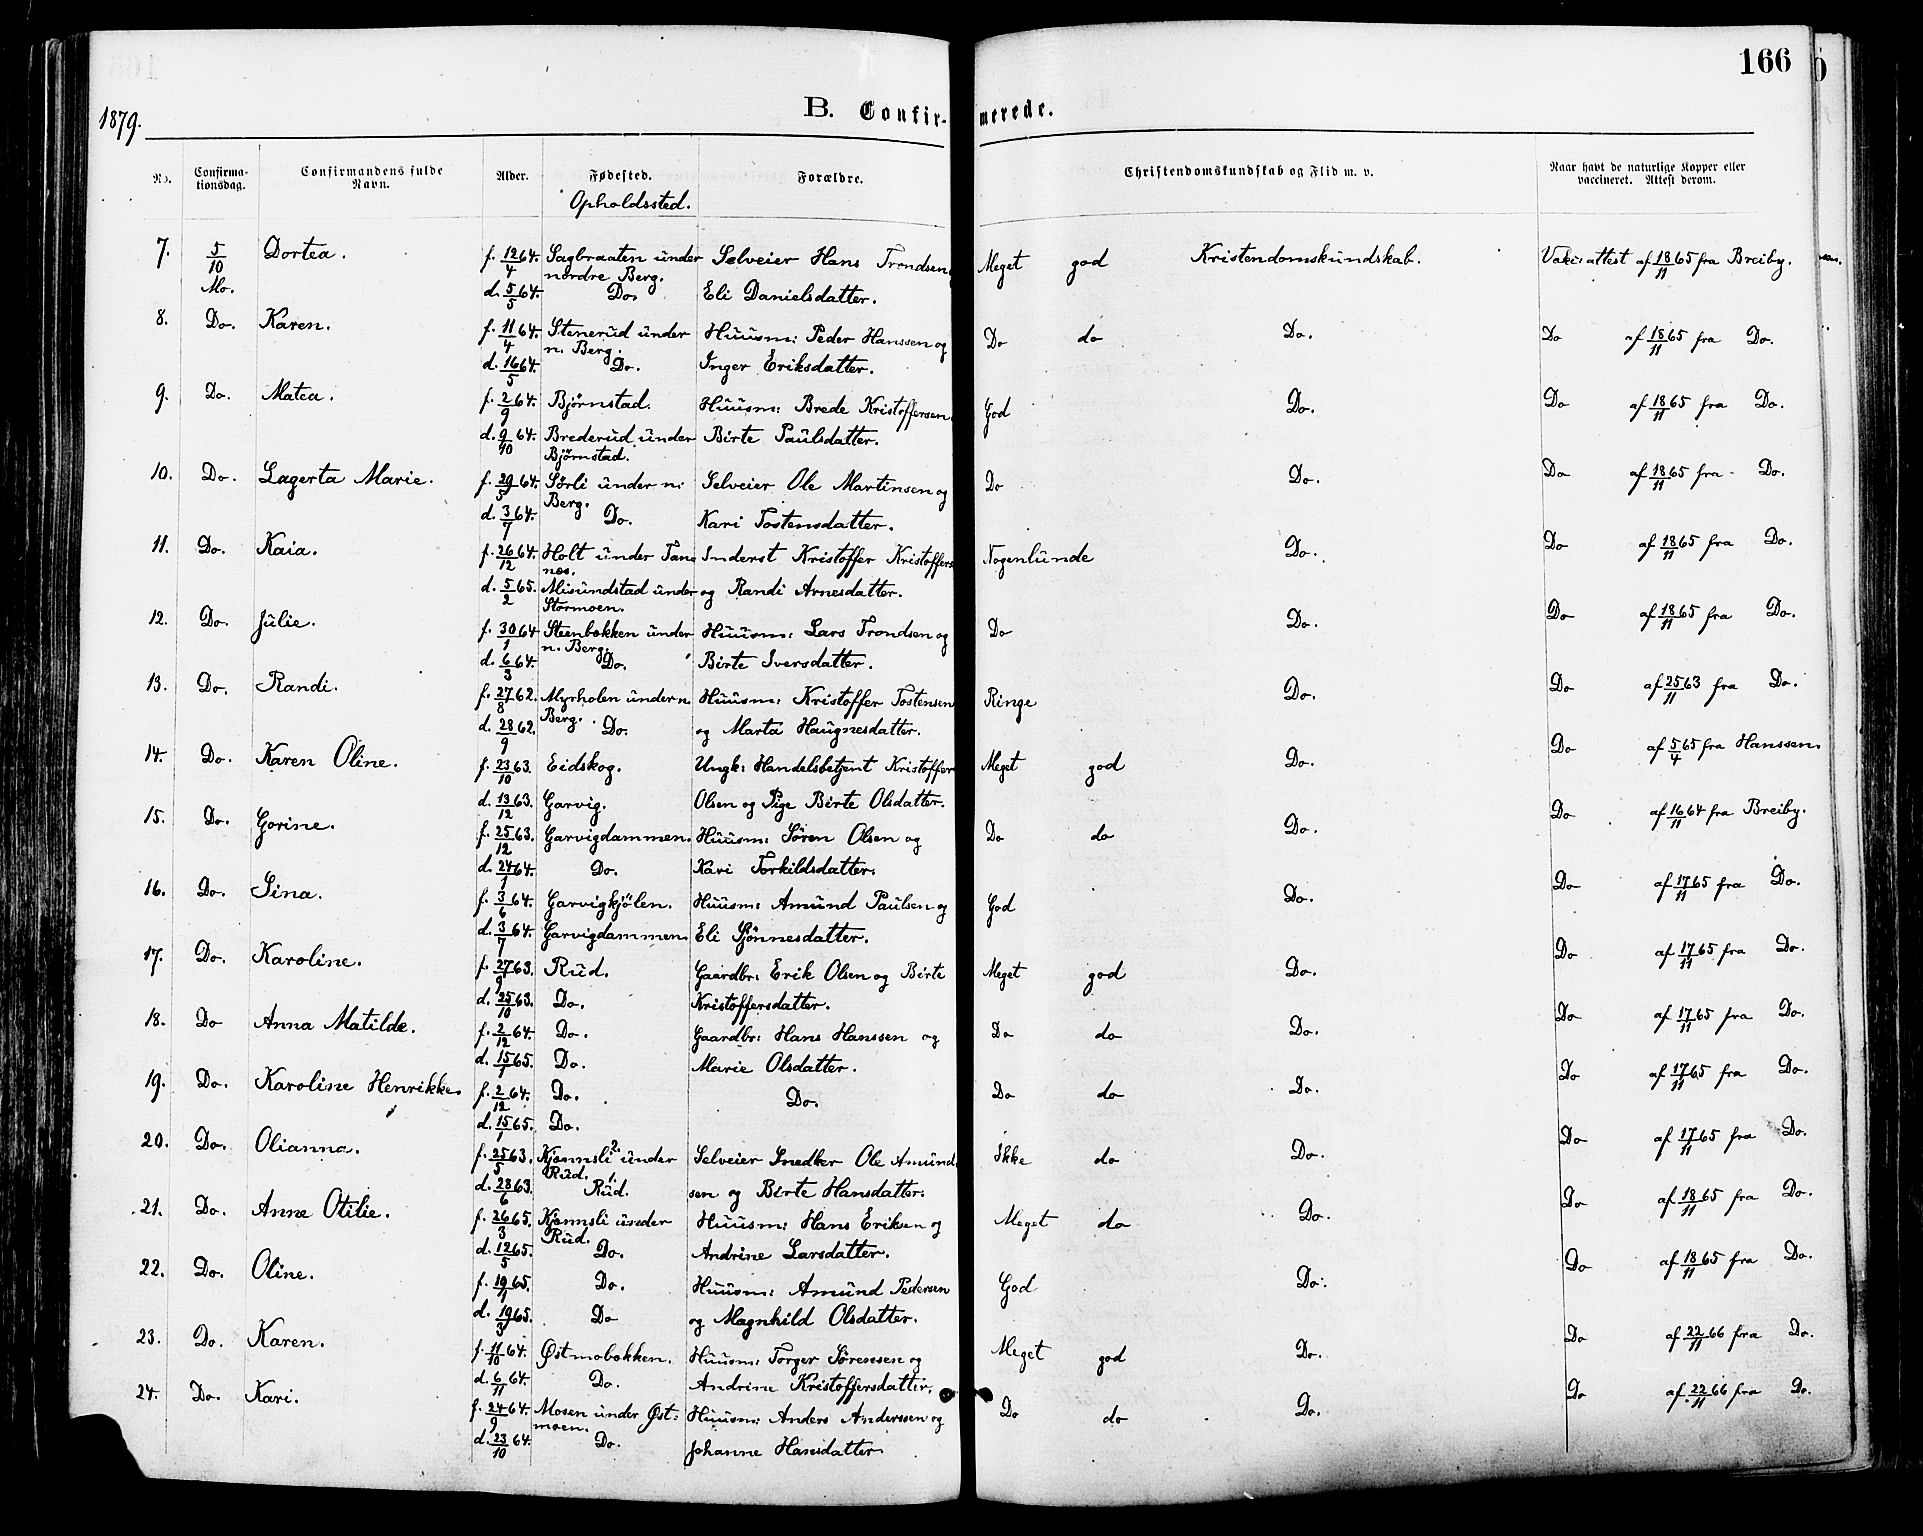 166
1879.
B. Confirmerede.
No. Confirmationsdag. Confirmandens fulde Navn. Alder. Fødested. Forældre. Christendomskundskab og Flid m. v. Naar havt de naturlige Kopper eller vaccineret. Attest derom.
Opholdssted.
7. 5/10 Dortea. f. 12/4 64. Sagbraaten under Selveier Hans Trondsen Meget god Kristendomskundskab. Vaks: attest af 18/11 65 fra Breiby.
nordre Berg.
Mo. d. 5/5 64. Do. Eli Danielsdatter.
8. Do. Karen. f. 11/4 64. Stenerud under Huusm: Peder Hanssen og Do do Do. Do af 18/11 65 fra Do.
n. Berg.
d. 16/5 64. Do. Inger Eriksdatter.
9. Do. Matea. f. 2/9 64. Bjørnstad. Huusm: Brede Kristoffersen God Do. Do af 18/11 65 fra Do.
d. 9/10 64. Brederud under Birte Paulsdatter.
Bjørnstad.
10. Do. Lagerta Marie. f. 29/5 64. Sørli under n: Selveier Ole Martinsen og Do Do. Do af 18/11 65 fra Do.
Berg.
d. 3/7 64. Do. Kari Tostensdatter.
11. Do. Kaia. f. 26/12 64. Holt under Tana Inderst Kristoffer Kristoffers Nogenlunde Do. Do af 18/11 65 fra Do.
nes.
d. 5/2 65. Misundstad under og Randi Arnesdatter.
Stormoen.
12. Do. Julie. f. 30/1 64 Steenbakken under Huusm: Lars Trondsen og Do Do. Do af 18/11 65 fra Do.
n. Berg.
d. 6/3 64. Do. Birte Iversdatter.
13. Do. Randi. f. 27/8 62. Myrholen under n. Huusm: Kristoffer Tostensen Ringe Do. Do af 25/11 63 fra Do.
Berg.
d. 28/9 62. Do. og Marta Haugnesdatter.
14. Do. Karen Oline. f. 23/10 63. Eidskog. Ungk: Handelsbetjent Kristoffer Meget god Do. Do af 5/4 65 fra Hanssen.
d. 13/12 63. Garvig. Olsen og Pige Birte Olsdatter.
15. Do. Gorine. f. 25/12 63. Garvigdammen. Huusm: Søren Olsen og Do do Do. Do af 16/11 64 fra Breiby.
d. 24/1 64. Do. Kari Torkildsdatter.
16. Do. Sina. f. 3/6 64. Garvigkjølen. Huusm: Amund Paulsen og God Do. Do af 17/11 65 fra Do.
d. 3/7 64. Garvigdammen. Eli Sjønnesdatter.
17. Do. Karoline. f. 27/9 63. Rud. Gaardbr: Erik Olsen og Birte Meget god Do. Do af 17/11 65 fra Do.
d. 25/10 63. Do. Kristoffersdatter.
18. Do Anna Matilde. f. 2/12 64. Do. Gaardbr: Hans Hanssen og Do do Do. Do af 17/11 65 fra Do.
d. 15/1 65. Do. Marie Olsdatter.
19. Do. Karoline Henrikke. f. 2/12 64. Do. Do. Do do Do. Do af 17/11 65 fra Do.
d. 15/1 65. Do.
20. Do. Olianna. f. 25/5 63. Kjønnsli under Selveier Snedker Ole Amund Ikke do Do. Do af 17/11 65 fra Do.
Rud.
d. 28/6 63. Rud. sen og Birte Hansdatter.
21. Do. Anne Otilie. f. 26/3 65. Kjønnsli under Huusm: Hans Eriksen og Meget do Do. Do af 18/11 65 fra Do.
Rud.
d. 12/5 65. Do. Andrine Larsdatter.
22. Do. Oline. f. 19/1 65. Do. Huusm: Amund Pedersen God Do. Do af 18/11 65 fra Do.
d. 19/3 65. Do og Magnhild Olsdatter.
23. Do. Karen. f. 11/10 64. Østmobakken. Huusm: Torger Sørensen og Meget god Do. Do af 22/11 66 fra Do.
d. 6/11 64. Do. Andrine Kristoffersdatter.
24. Do. Kari. f. 24/9 64. Mosen under Øst= Huusm: Anders Anderssen og Do do Do. Do af 22/11 66 fra Do.
moen.
d. 23/10 64. Do. Johanne Hansdatter